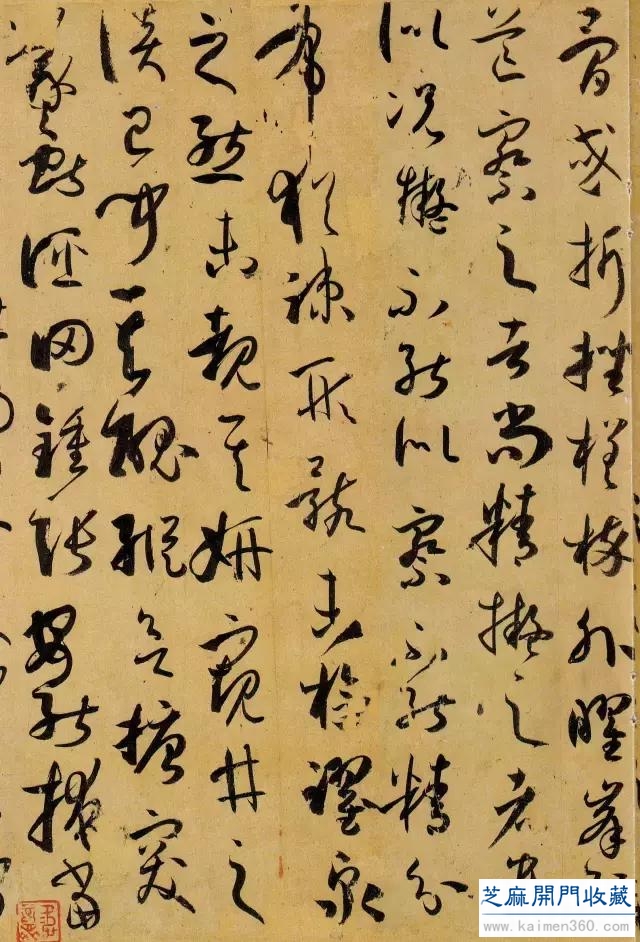 骨或折挫槎枿外曜峯
芒察之者尚精擬之者貴
似況擬不能似察不能精分
布猶疎形骸未檢躍泉
之態未覩其妍窺井之
談已聞其醜縱欲搪突
羲獻誣罔鍾張安能掩當
芝麻開門收藏
www.kaimen360.com